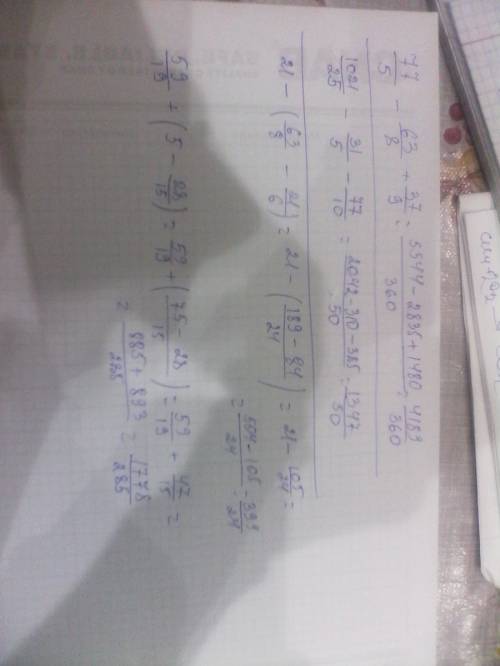 77/5 - 63/8 + 37/9 = (5544 - 2835 + 1480)/360 = 4189/360
1021/25 - 31/5 - 77/10 = (2042 - 310 - 385)/50 = 1347/50
21 - (63/8 - 21/6) = 21 - ((189 - 84)/24) = 21 - 105/24 =
= (504 - 105)/24 = 399/24
59/19 + (5 - 28/15) = 59/19 + ((75 - 28)/15) = 59/19 + 47/15 =
= (885 + 893)/285 = 1778/285